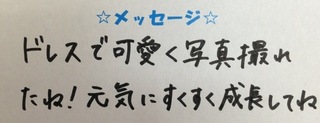 ☆メッセージ☆
ドレスで可愛く写真撮れ
たね!元気にすくすく成長してね